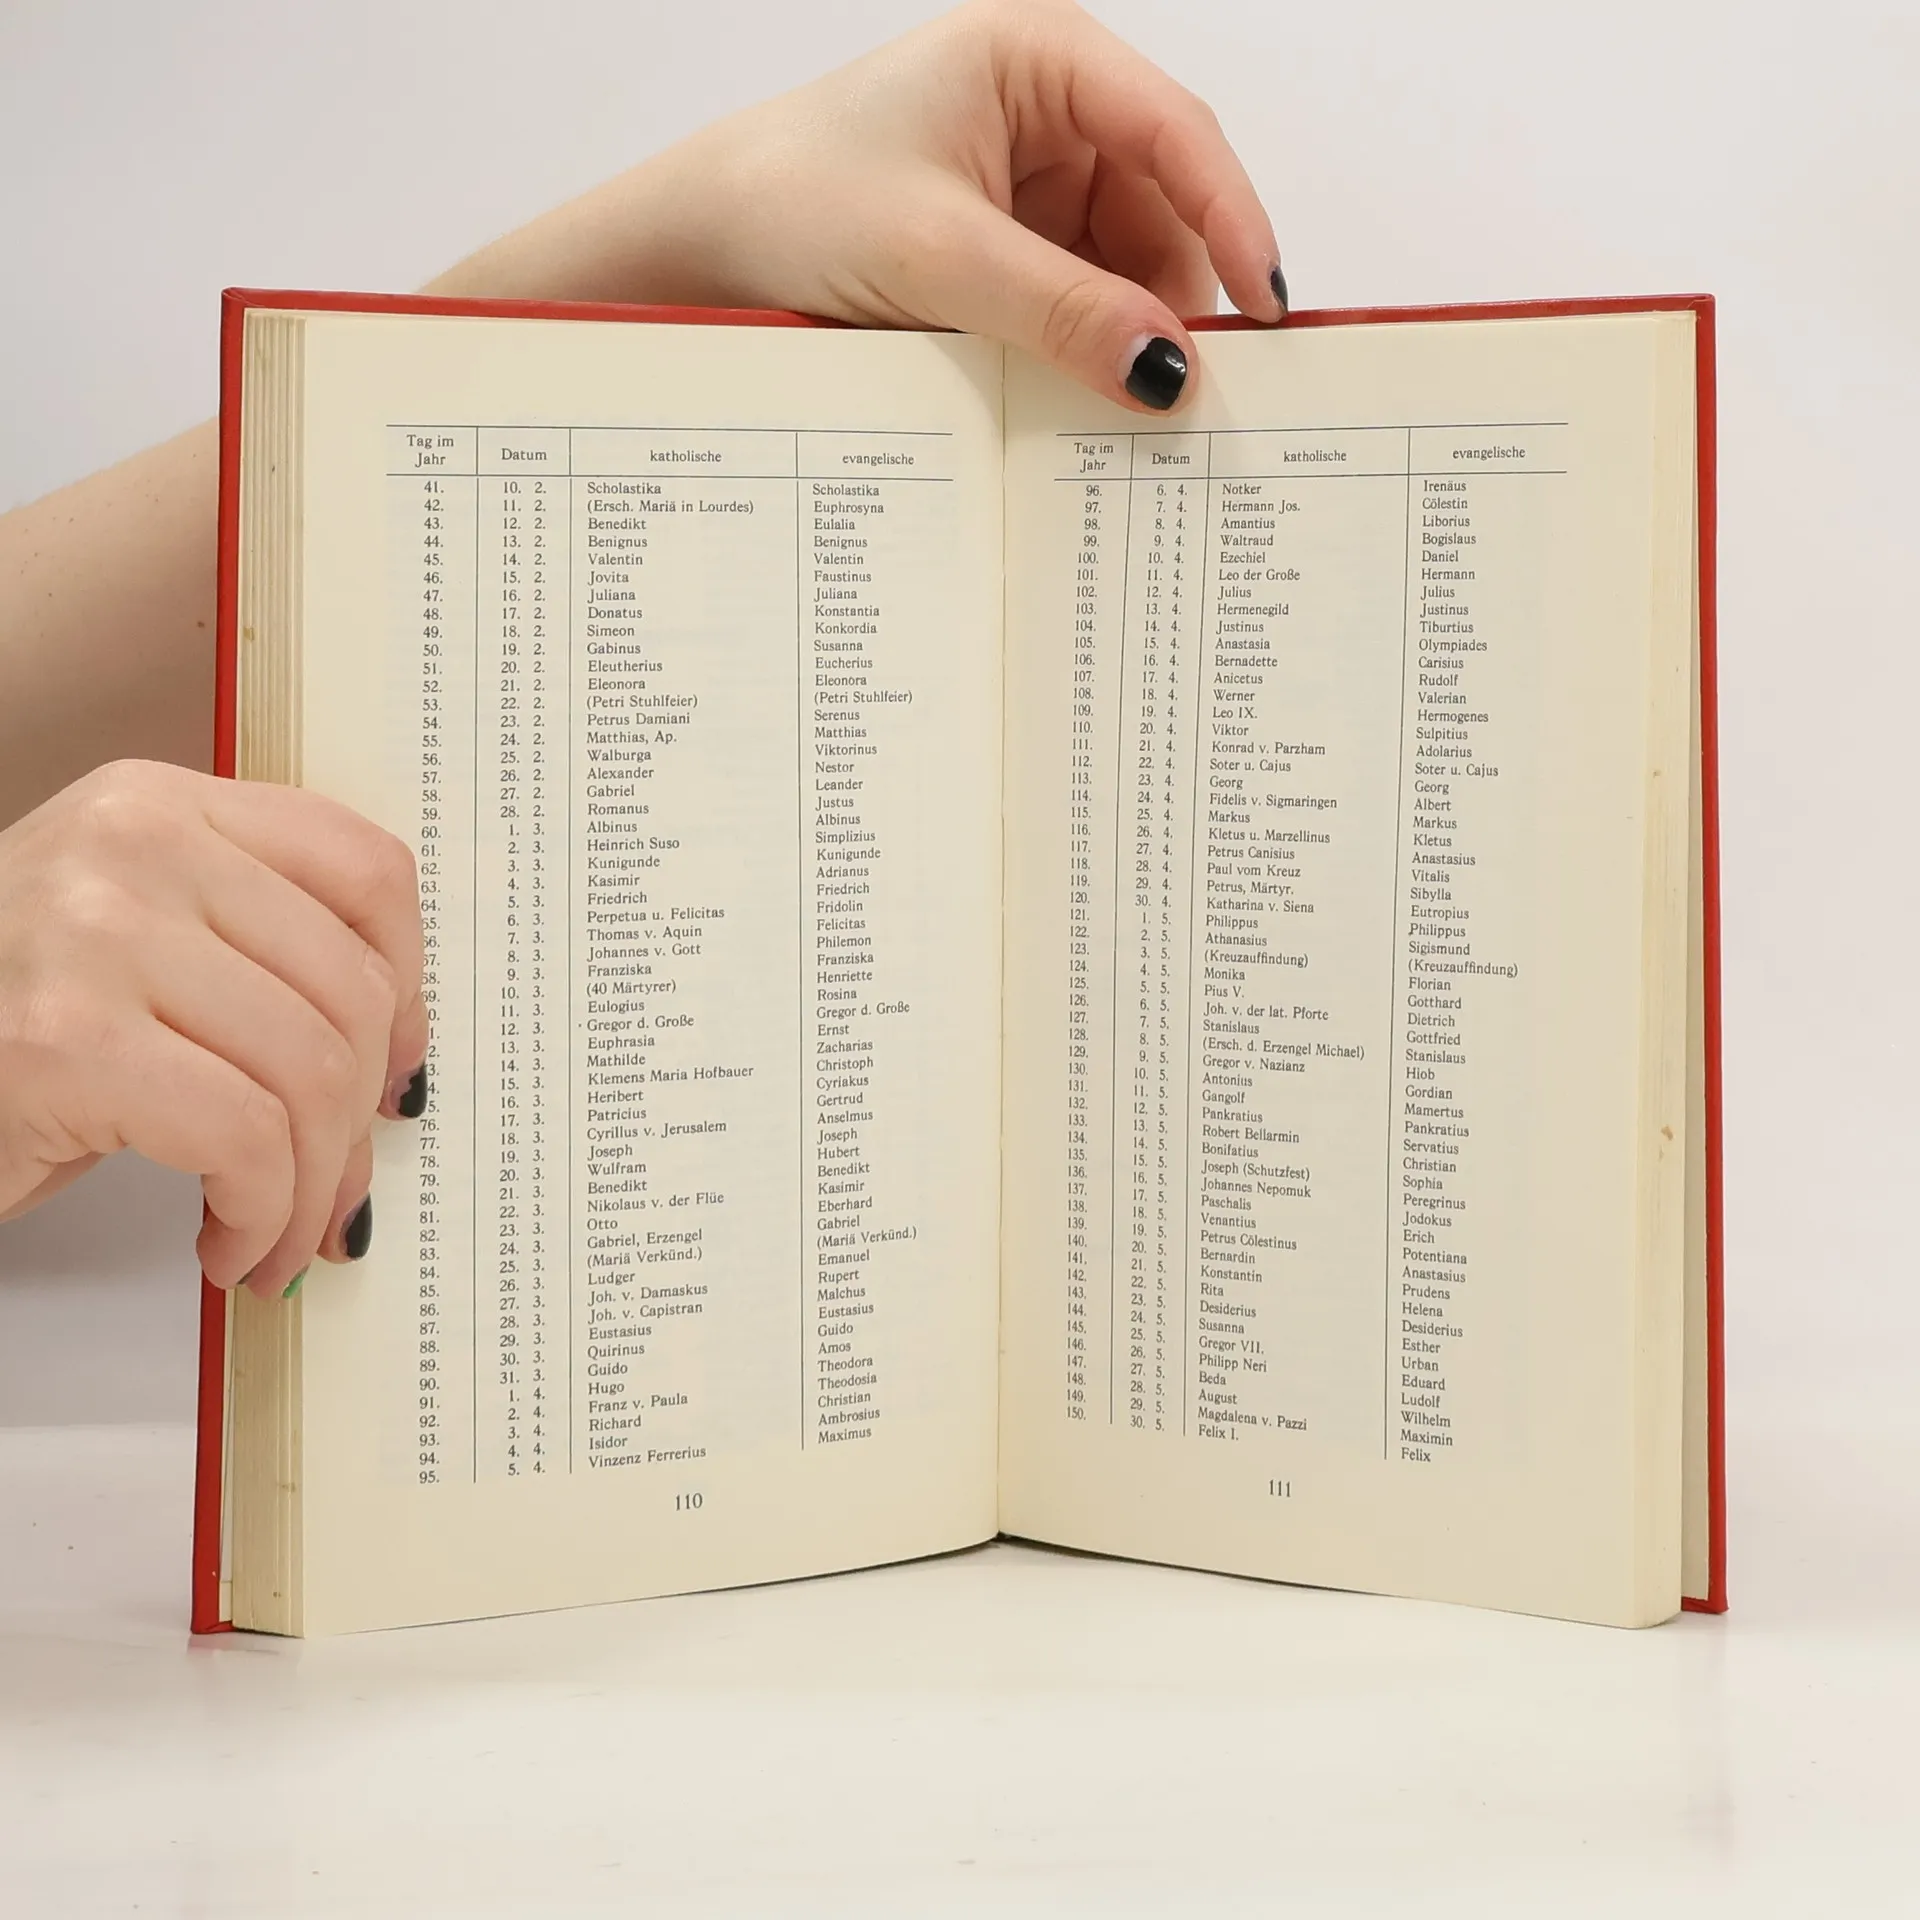 Tag im Jahr Datum katholische evangelische
41. 10. 2. Scholastika Scholastika
42. 11. 2. (Ersch. Mariä in Lourdes) Euphrosyna
43. 12. 2. Benedikt Eulalia
44. 13. 2. Benignus Benignus
45. 14. 2. Valentin Valentin
46. 15. 2. Jovita Faustinus
47. 16. 2. Juliana Juliana
48. 17. 2. Donatus Konstantia
49. 18. 2. Simeon Konkordia
50. 19. 2. Gabinus Susanna
51. 20. 2. Eleutherius Eucherius
52. 21. 2. Eleonora Eleonora
53. 22. 2. (Petri Stuhlfeier) (Petri Stuhlfeier)
54. 23. 2. Petrus Damiani Serenus
55. 24. 2. Matthias, Ap. Matthias
56. 25. 2. Walburga Viktorinus
57. 26. 2. Alexander Nestor
58. 27. 2. Gabriel Leander
59. 28. 2. Romanus Justus
60. 1. 3. Albinus Albinus
61. 2. 3. Heinrich Suso Simplizius
62. 3. 3. Kunigunde Kunigunde
63. 4. 3. Kasimir Adrianus
64. 5. 3. Friedrich Friedrich
65. 6. 3. Perpetua u. Felicitas Fridolin
66. 7. 3. Thomas v. Aquin Felicitas
67. 8. 3. Johannes v. Gott Philemon
68. 9. 3. Franziska Franziska
69. 10. 3. (40 Märtyrer) Henriette
0. 11. 3. Eulogius Rosina
1. 12. 3. Gregor d. Große Gregor d. Große
2. 13. 3. Euphrasia Ernst
3. 14. 3. Mathilde Zacharias
4. 15. 3. Klemens Maria Hofbauer Christoph
5. 16. 3. Heribert Cyriakus
76. 17. 3. Patricius Gertrud
77. 18. 3. Cyrillus v. Jerusalem Anselmus
78. 19. 3. Joseph Joseph
79. 20. 3. Wulfram Hubert
80. 21. 3. Benedikt Benedikt
81. 22. 3. Nikolaus v. der Flüe Kasimir
82. 23. 3. Otto Eberhard
83. 24. 3. Gabriel, Erzengel Gabriel
84. 25. 3. (Mariä Verkünd.) (Mariä Verkünd.)
85. 26. 3. Ludger Emanuel
86. 27. 3. Joh. v. Damaskus Rupert
87. 28. 3. Joh. v. Capistran Malchus
88. 29. 3. Eustasius Eustasius
89. 30. 3. Quirinus Guido
90. 31. 3. Guido Amos
91. 1. 4. Hugo Theodora
92. 2. 4. Franz v. Paula Theodosia
93. 3. 4. Richard Christian
94. 4. 4. Isidor Ambrosius
95. 5. 4. Vinzenz Ferrerius Maximus
110
Tag im Jahr Datum katholische evangelische
96. 6. 4. Notker Irenäus
97. 7. 4. Hermann Jos. Cölestin
98. 8. 4. Amantius Liborius
99. 9. 4. Waltraud Bogislaus
100. 10. 4. Ezechiel Daniel
101. 11. 4. Leo der Große Hermann
102. 12. 4. Julius Julius
103. 13. 4. Hermenegild Justinus
104. 14. 4. Justinus Tiburtius
105. 15. 4. Anastasia Olympiades
106. 16. 4. Bernadette Carisius
107. 17. 4. Anicetus Rudolf
108. 18. 4. Werner Valerian
109. 19. 4. Leo IX. Hermogenes
110. 20. 4. Viktor Sulpitius
111. 21. 4. Konrad v. Parzham Adolarius
112. 22. 4. Soter u. Cajus Soter u. Cajus
113. 23. 4. Georg Georg
114. 24. 4. Fidelis v. Sigmaringen Albert
115. 25. 4. Markus Markus
116. 26. 4. Kletus u. Marzellinus Kletus
117. 27. 4. Petrus Canisius Anastasius
118. 28. 4. Paul vom Kreuz Vitalis
119. 29. 4. Petrus, Märtyr. Sibylla
120. 30. 4. Katharina v. Siena Eutropius
121. 1. 5. Philippus Philippus
122. 2. 5. Athanasius Sigismund
123. 3. 5. (Kreuzauffindung) (Kreuzauffindung)
124. 4. 5. Monika Florian
125. 5. 5. Pius V. Gotthard
126. 6. 5. Joh. v. der lat. Pforte Dietrich
127. 7. 5. Stanislaus Gottfried
128. 8. 5. (Ersch. d. Erzengel Michael) Stanislaus
129. 9. 5. Gregor v. Nazianz Hiob
130. 10. 5. Antonius Gordian
131. 11. 5. Gangolf Mamertus
132. 12. 5. Pankratius Pankratius
133. 13. 5. Robert Bellarmin Servatius
134. 14. 5. Bonifatius Christian
135. 15. 5. Joseph (Schutzfest) Sophia
136. 16. 5. Johannes Nepomuk Peregrinus
137. 17. 5. Paschalis Jodokus
138. 18. 5. Venantius Erich
139. 19. 5. Petrus Cölestinus Potentiana
140. 20. 5. Bernardin Anastasius
141. 21. 5. Konstantin Prudens
142. 22. 5. Rita Helena
143. 23. 5. Desiderius Desiderius
144. 24. 5. Susanna Esther
145. 25. 5. Gregor VII. Urban
146. 26. 5. Philipp Neri Eduard
147. 27. 5. Beda Ludolf
148. 28. 5. August Wilhelm
149. 29. 5. Magdalena v. Pazzi Maximin
150. 30. 5. Felix I. Felix
111